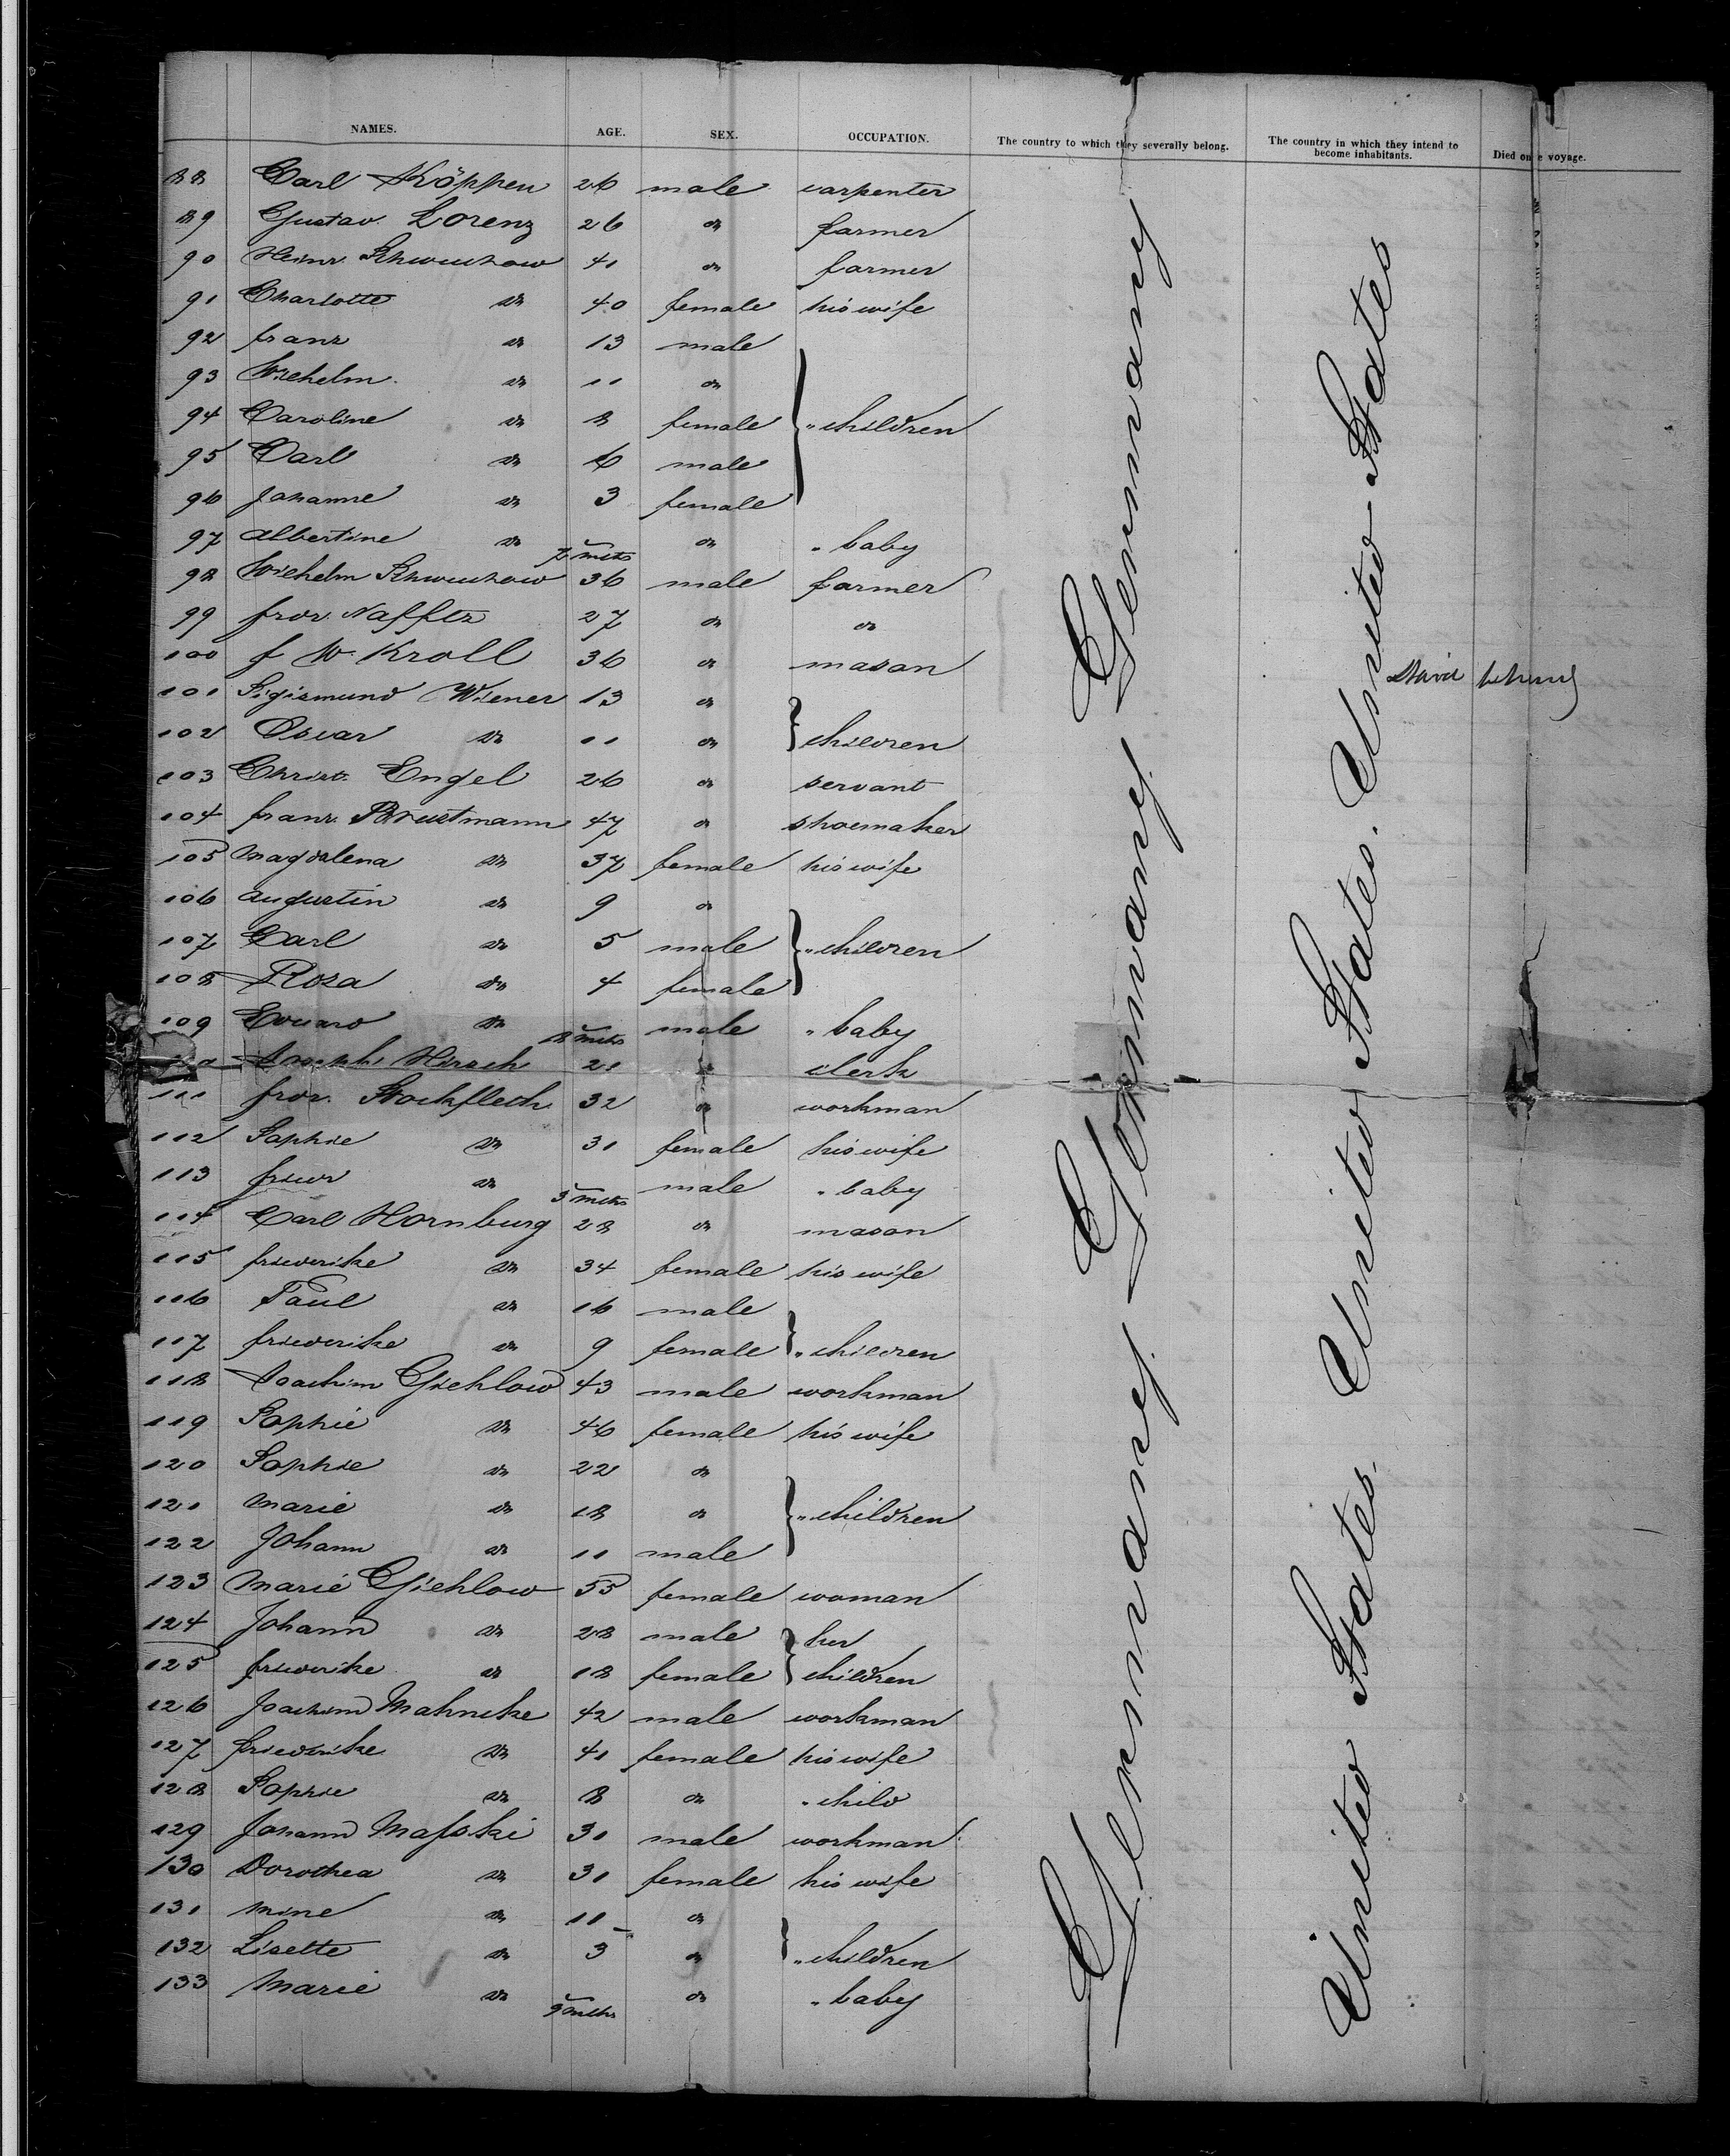 NAMES. AGE. SEX. OCCUPATION. The country to which they severally belong. The country in which they intend to become inhabitants. Died on e voyage.
88 Carl Köppen 26 male carpenter
89 Gustav Lorenz 26 do farmer
90 Heinr. Schwuchow 41 do farmer
91 Charlotte do 40 female his wife
92 Franz do 13 male
93 Wilhelm do 11 do
94 Caroline do 8 female " children
95 Carl do 6 male
96 Johanne do 3 female
97 Albertine do 7 mths do " baby
98 Wilhelm Schwuchow 36 male farmer
99 Frdr. Nafftz 27 do do
100 F W. Kroll 36 do mason
staid behind
101 Sigismund Wiener 13 do
102 Oscar do 11 do children
103 Christ. Engel 26 do servant
104 Franz Brustmann 47 do shoemaker
105 Magdalena do 37 female his wife
106 Augustin do 9 do
107 Carl do 5 male " children
108 Rosa do 4 female
109 Eduard do 8 mths male " baby
Joseph Hirsch 21 clerk
111 Frdr. Stockfleth 32 do workman
112 Sophie do 31 female his wife
113 Friedr do 5 mths male " baby
114 Carl Hornburg 28 do mason
115 Friederike do 34 female his wife
116 Paul do 16 male
117 Friederike do 9 female " children
118 Joachim Giehlow 43 male workman
119 Sophie do 46 female his wife
120 Sophie do 22 do
121 Marie do 18 do " children
122 Johann do 11 male
123 Marie Giehlow 55 female woman
124 Johann do 28 male her
125 Friederike do 18 female children
126 Joachim Mahncke 42 male workman
127 Friederike do 41 female his wife
128 Sophie do 8 do " child
129 Johann Masski 30 male workman
130 Dorothea do 31 female his wife
131 Mine do 11 do
132 Lisette do 3 do " children
133 Marie do 9 mths do " baby
Germany Germany Germany Germany
United States United States. United States